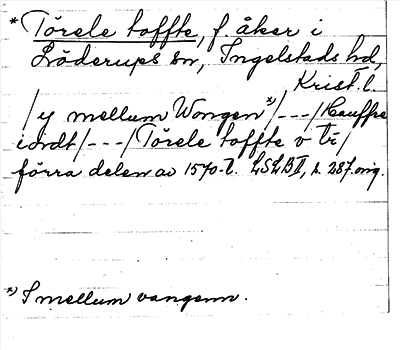 * Törele toffte, f. åker i
Löderups sn, Ingelstads hd,
Krist. l.
/y mellum Wongen *)/---/Hauffre
iordt/---/Törele toffte v tr/
förra delen av 1570-t. LSLB II, s. 287. orig.
*) I mellum vangenn.